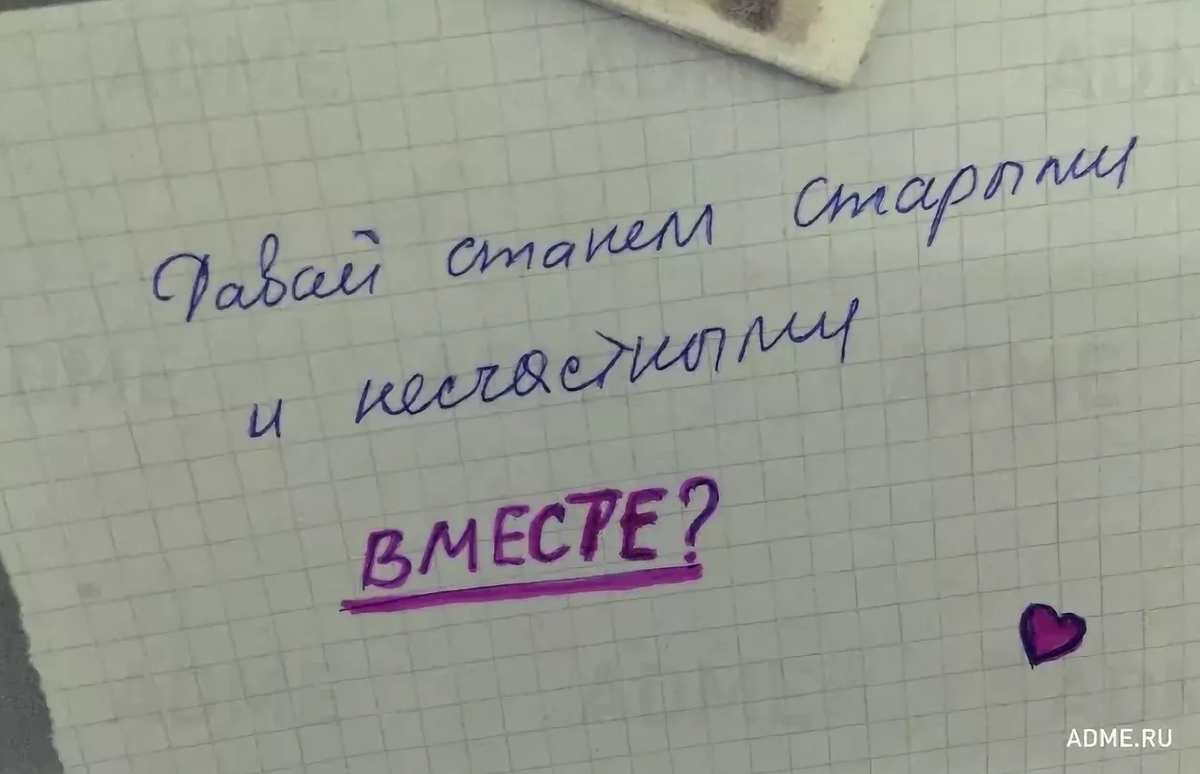 Давай станем старыми
и несчастными
ВМЕСТЕ?
ADME.RU